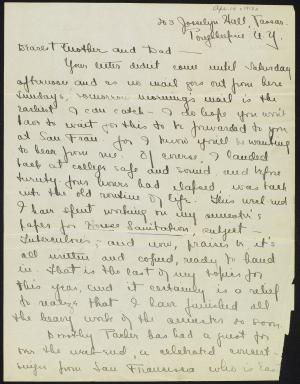 Apr. 10, 1920
203 Josselyn Hall, Vassar
Poughkeepsie N.Y.
Dearest Mother and Dad —
Your letter didn't come until Saturday
afternoon and as no mail goes out from here
Sundays, tomorrow morning's mail is the
earliest I can catch — I do hope you won't
have to wait for this to be forwarded to you
at San Fran. for I know you'll be wanting
to hear from me. Of course, I landed
back at college safe and sound, and before
twenty four hours had elapsed, was back
into the old routine of life. This week-end
I have spent working on my semester's
paper for House Sanitation, subject —
Tuberculosis; and now, praises be it's
all written and copied, ready to hand
in. That is the last of my topics for
this year, and it certainly is a relief
to realize that I have finished all
the heavy work of the semester so soon.
Dorothy Parker has had a guest for
over the week-end, a celebrated concert-
singer from San Francisco who is